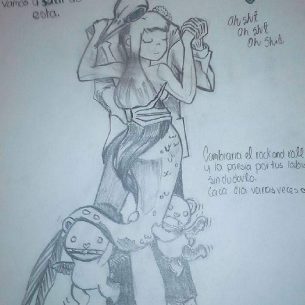 vamos a salir de
esta.
Oh shit
Oh shit
Oh Shit.
Cambiaria el rock and roll
y la poesia por tus labios
sin dudarlo.
Cada dia varias veces